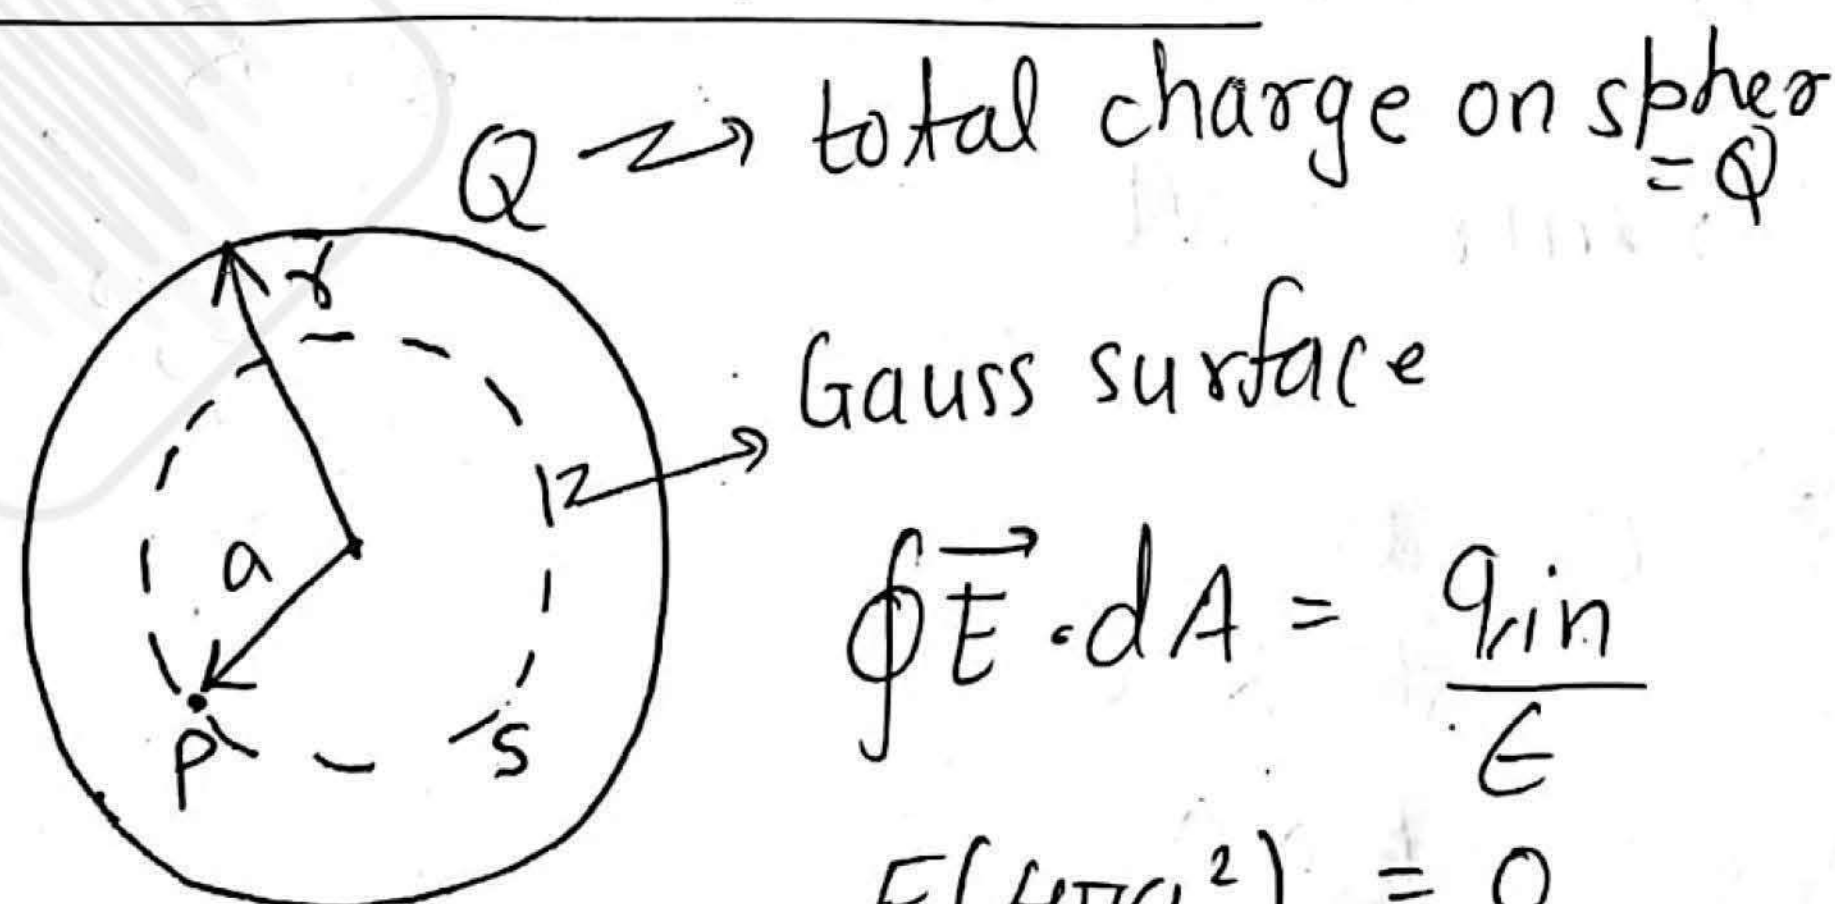 Q → total charge on spher
= Q
r
Gauss surface
a
∮E⃗ · dA = qin / ϵ
P
S
E(4πa²) = 0